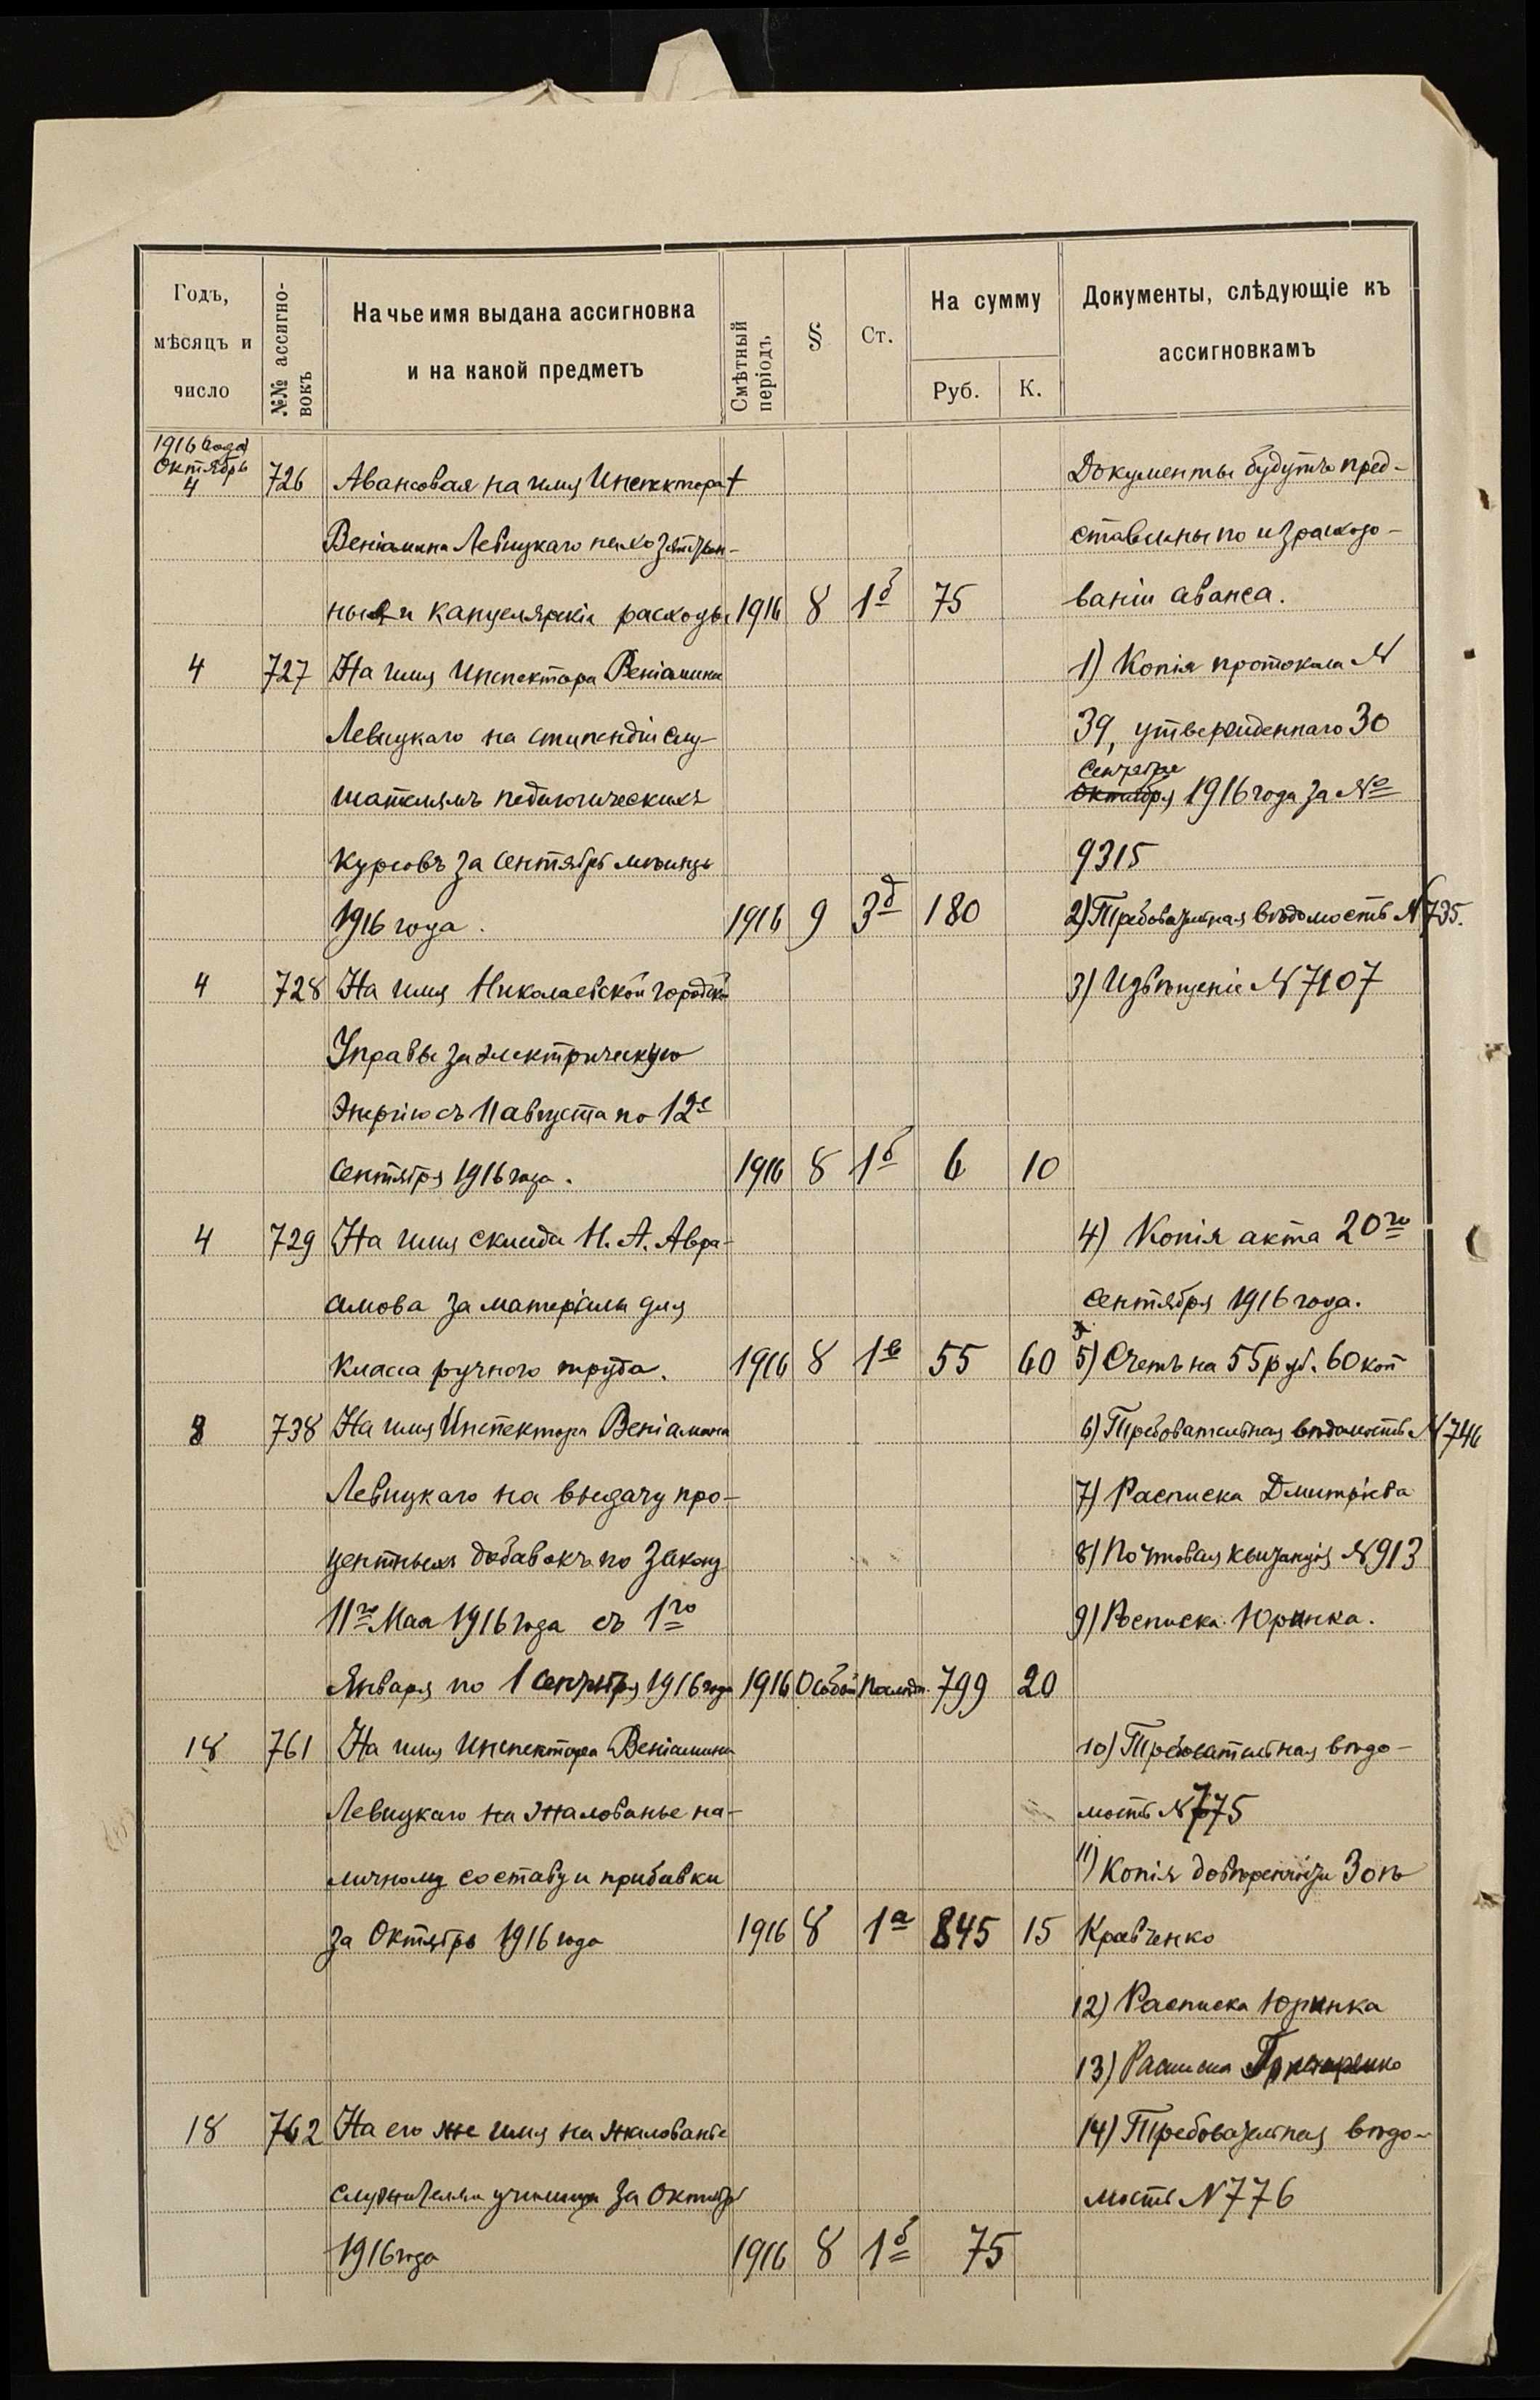 Годъ, мѣсяцъ и число
№№ ассигно-вокъ
На чье имя выдана ассигновка
и на какой предметъ
Смѣтный періодъ
§
Ст.
На сумму
Руб. К.
Документы, слѣдующіе къ
ассигновкамъ
1916 года
Октябрь
4 726 Авансовая на имя Инспектора Документы будутъ пред-
Веніамина Левицкаго на хозяйствен- ставлены по израсходо-
ные и канцелярскіе расходы 1916 8 1б 75 ваніи аванса.
4 727 На имя Инспектора Веніамина 1) Копія протокола №
Левицкаго на стипендіи слу- 39, утвержденнаго 30
Сентября
шателямъ педагогическихъ Октября 1916 года за №
курсовъ за Сентябрь мѣсяцъ 9315
1916 года. 1916 9 3д 180 2) Требовательная вѣдомость № 735.
4 728 На имя Николаевской городской 3) Извѣщеніе № 7107
Управы за электрическую
Энергію съ 11 августа по 12е
Сентября 1916 года. 1916 8 1б 6 10
4 729 На имя склада Н. А. Авра- 4) Копія акта 20го
амова за матеріалы для Сентября 1916 года.
класса ручного труда. 1916 8 1в 55 60 5) Счетъ на 55 руб. 60 коп
8 738 На имя Инспектора Веніамина 6) Требовательная вѣдомость № 746
Левицкаго на выдачу про- 7) Расписка Дмитріева
центныхъ добавокъ по закону 8) Почтовая квитанція № 913
11го Мая 1916 года съ 1го 9) Расписка Юринка.
Января по 1 Сентября 1916 года 1916 Особой 799 20
18 761 На имя Инспектора Веніамина 10) Требовательная вѣдо-
Левицкаго на жалованье на- мость № 775
личному составу и прибавки 11) Копія довѣренности Зоѣ
за Октябрь 1916 года 1916 8 1а 845 15 Кравченко
12) Расписка Юринка
13) Расписка
18 762 На его же имя на жалованье 14) Требовательная вѣдо-
служителям училища за Октябрь мость № 776
1916 года 1916 8 1б 75